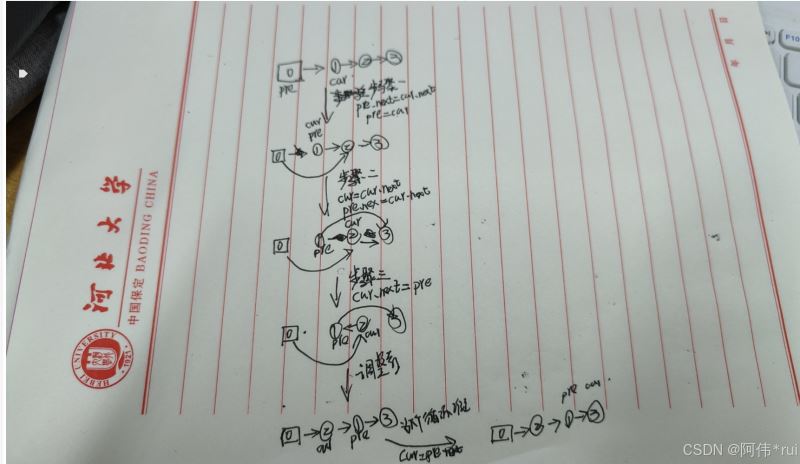 0 → 1 → 2 → 3
pre cur
步骤一
pre.next=cur.next
pre=cur
cur
pre
0 1 → 2 → 3
步骤二
cur=cur.next
pre.nex=cur.next
cur
0 1 2 3
pre
步骤三
cur.next=pre
0 1 2 3
pre cur
调整形
0 → 2 → 1 → 3
cur pre
cur=pre.next
pre cur
0 → 2 → 1 → 3
河北大学
中国保定 BAODING CHINA
HEBEI UNIVERSITY
1921
年 月 日
F10
CSDN @阿伟*rui